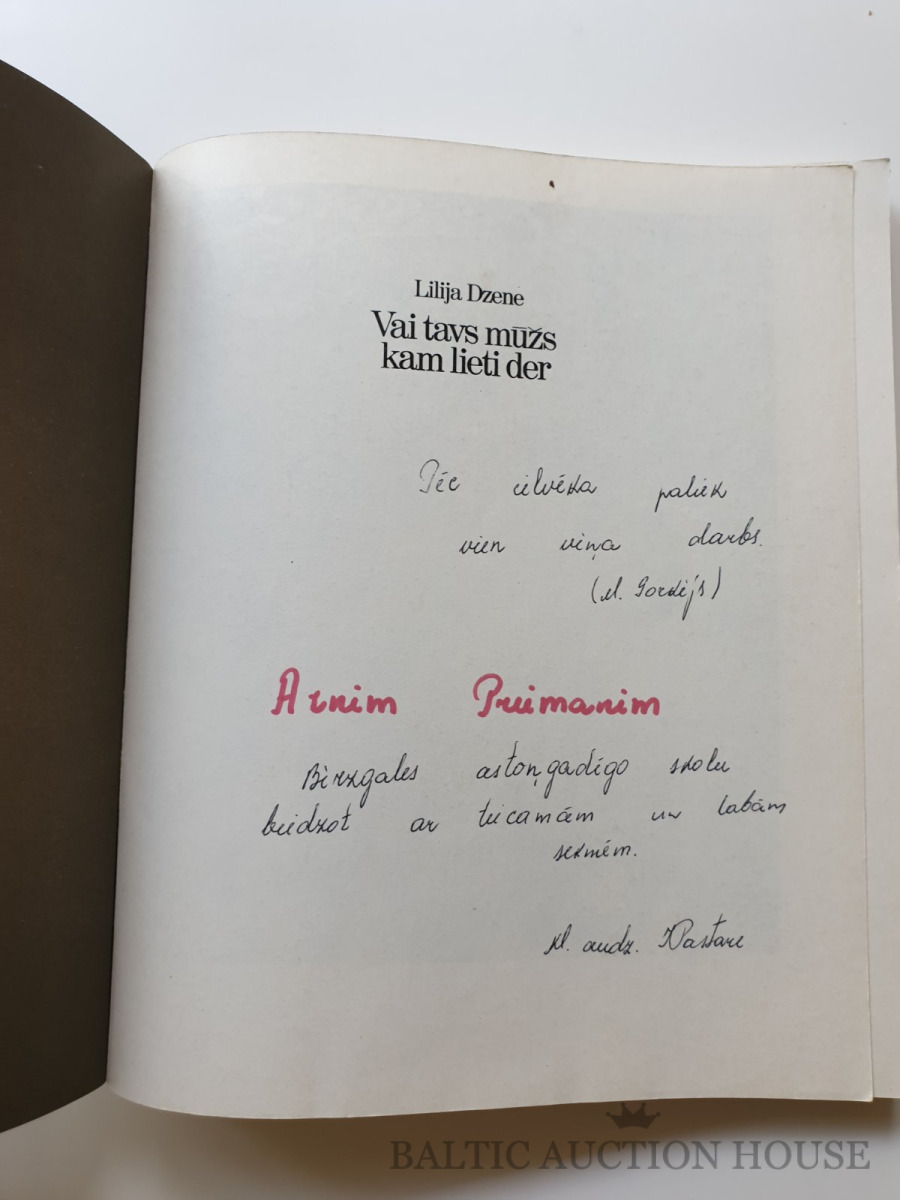 Lilija Dzene
Vai tavs mūžs
kam lieti der
Pēc cilvēka paliek
vien viņa darbs.
(M. Gorkijs)
Arnim Preimanim
Birzgales astoņgadīgo skolu
beidzot ar teicamām un labām
sekmēm.
kl. audz.
BALTIC AUCTION HOUSE